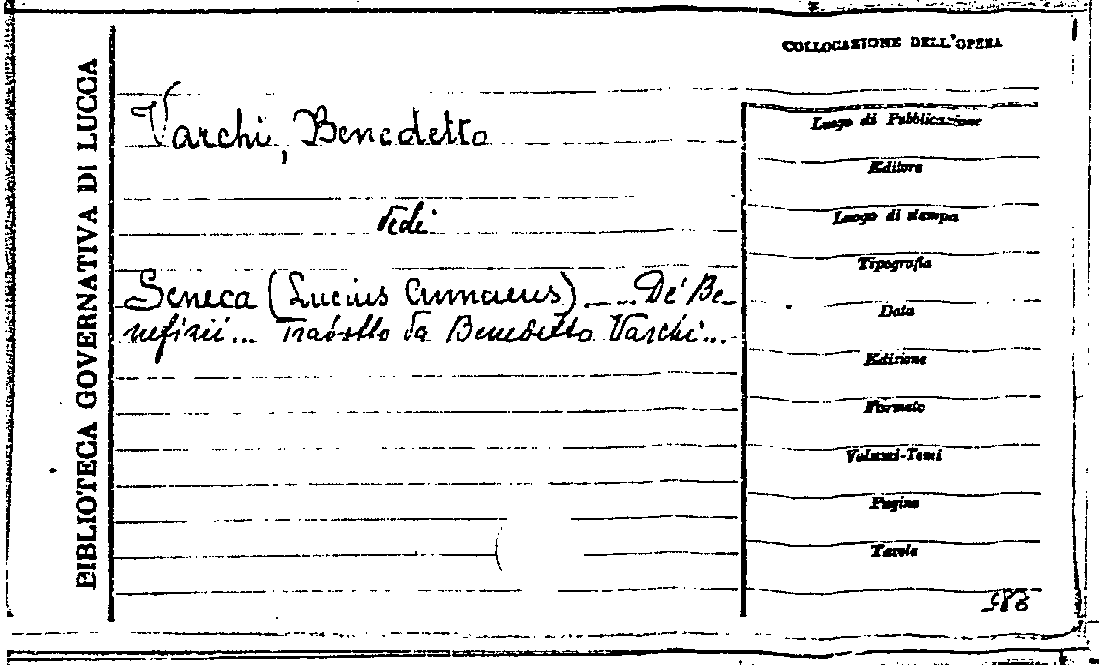 BIBLIOTECA GOVERNATIVA DI LUCCA
COLLOCAZIONE DELL'OPERA
Varchi, Benedetto
Vedi
Seneca (Lucius Annaeus) ..... De' Be-
nefizii... Tradotto da Benedetto Varchi...
Luogo di Pubblicazione
Editore
Luogo di stampa
Tipografia
Data
Edizione
Formato
Volumi-Tomi
Pagine
Tavole